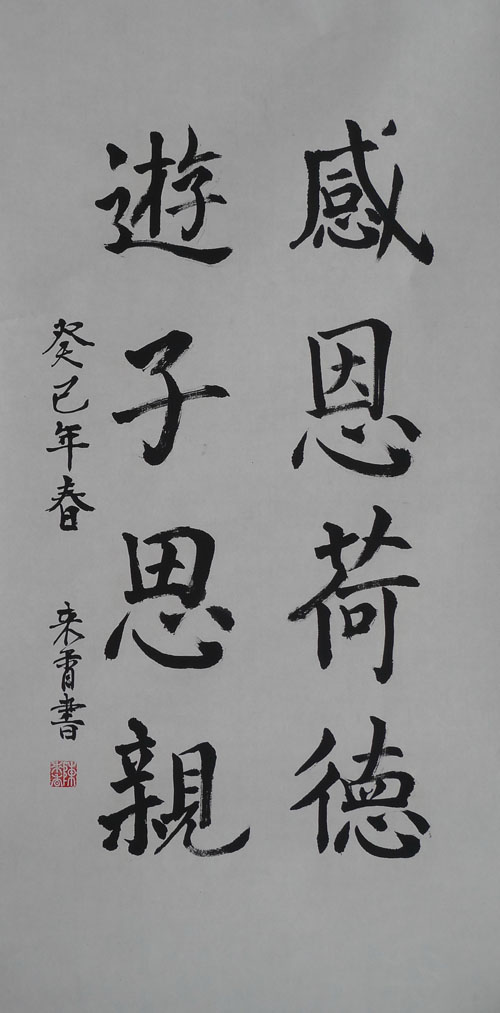 感恩荷德
遊子思親
癸巳年春 来霄書